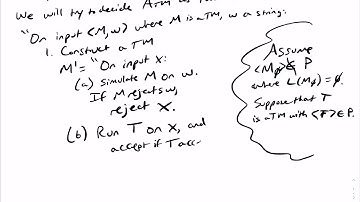 We will try to decide ATM as
"On input ⟨M, w⟩ where M is a TM, w a string:
1. Construct a TM
M' = "On input x:
(a) Simulate M on w.
If M rejects w,
reject x.
(b) Run T on x, and
accept if T acc
Assume
⟨M∅⟩ ∉ P
where L(M∅) = ∅.
Suppose that T
is a TM with ⟨T⟩ ∈ P.